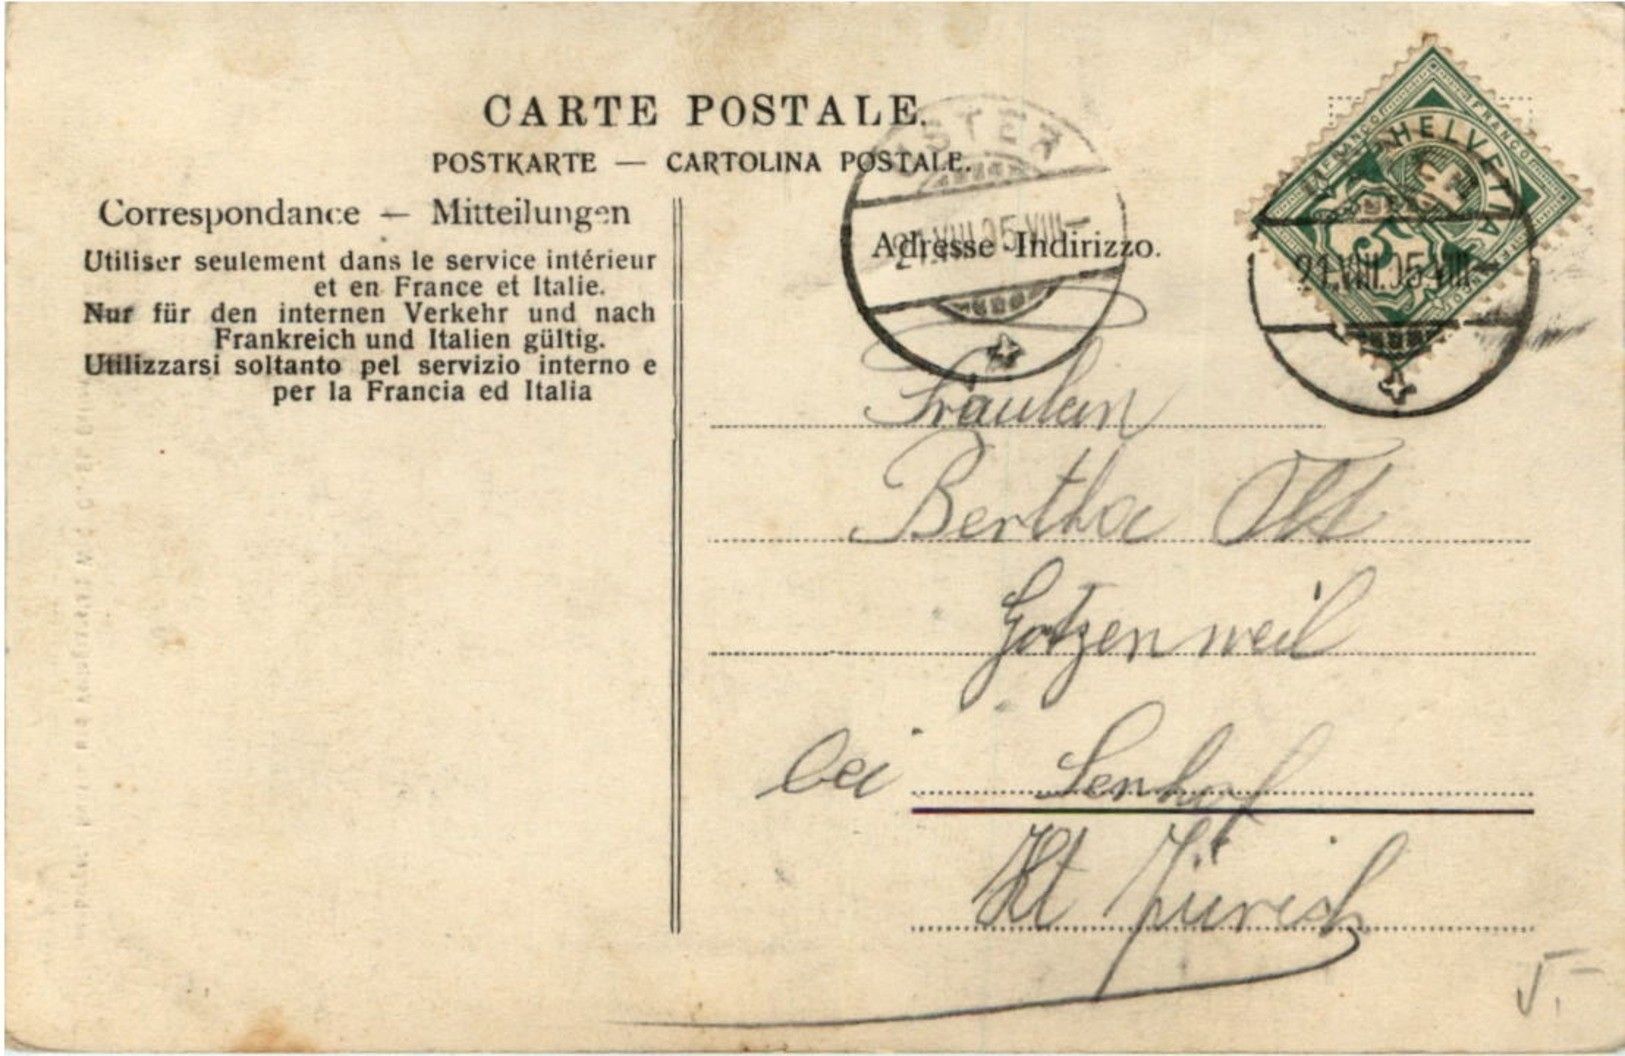 CARTE POSTALE.
POSTKARTE — CARTOLINA POSTALE.
Correspondance — Mitteilungen
Utiliser seulement dans le service intérieur
et en France et Italie.
Nur für den internen Verkehr und nach
Frankreich und Italien gültig.
Utilizzarsi soltanto pel servizio interno e
per la Francia ed Italia
Adresse - Indirizzo.
21.VIII.05.VIII-
HELVETIA
FRANCO
5
21.VIII.05.VIII-
Fräulein
Bertha Ott
Gotzenweil
bei Senhof
Kt Zürich
5.-